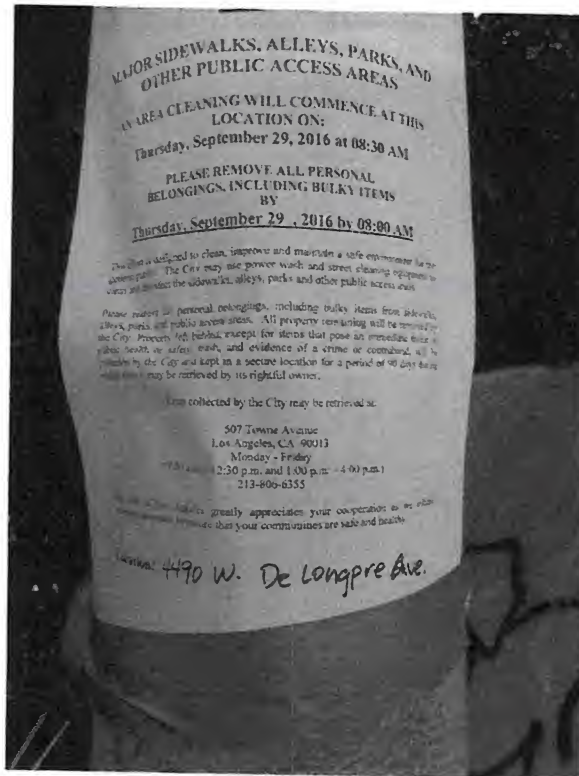 MAJOR SIDEWALKS, ALLEYS, PARKS, AND
OTHER PUBLIC ACCESS AREAS
AREA CLEANING WILL COMMENCE AT THIS
LOCATION ON:
Thursday, September 29, 2016 at 08:30 AM
PLEASE REMOVE ALL PERSONAL
BELONGINGS, INCLUDING BULKY ITEMS
BY
Thursday, September 29 , 2016 by 08:00 AM
is designed to clean, improve and maintain a safe environment for
The City may use power wash and street cleaning equipment to
the sidewalks, alleys, parks and other public access areas
Please remove all personal belongings, including bulky items from sidewalks,
alleys, parks, and public access areas. All property remaining will be removed by
the City. Property left behind, except for items that pose an immediate threat to
public health or safety, trash, and evidence of a crime or contraband, will be
collected by the City and kept in a secure location for a period of 90 days
may be retrieved by its rightful owner.
collected by the City may be retrieved at:
507 Towne Avenue
Los Angeles, CA 90013
Monday - Friday
12:30 p.m. and 1:00 p.m. - 4:00 p.m.)
213-806-6355
greatly appreciates your cooperation
that your communities are safe and healthy.
Location: 4490 W. De Longpre Ave.